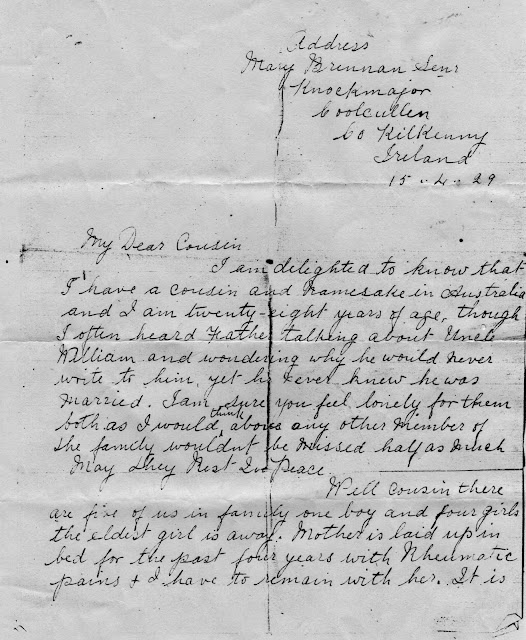 Address
Mary Brennan Senr
Knockmajor
Coolcullen
Co Kilkenny
Ireland
15-4-29
My Dear Cousin
I am delighted to know that
I have a cousin and namesake in Australia
and I am twenty-eight years of age, though
I often heard Father talking about Uncle
William and wondering why he would never
write to him, yet he never knew he was
married. I am sure you feel lonely for them
both as I would think above any other member of
the family wouldnt be missed half as much
May they Rest In Peace
Well Cousin there
are five of us in family one boy and four girls
the eldest girl is away. Mother is laid up in
bed for the past four years with Rheumatic
pains & I have to remain with her. It is